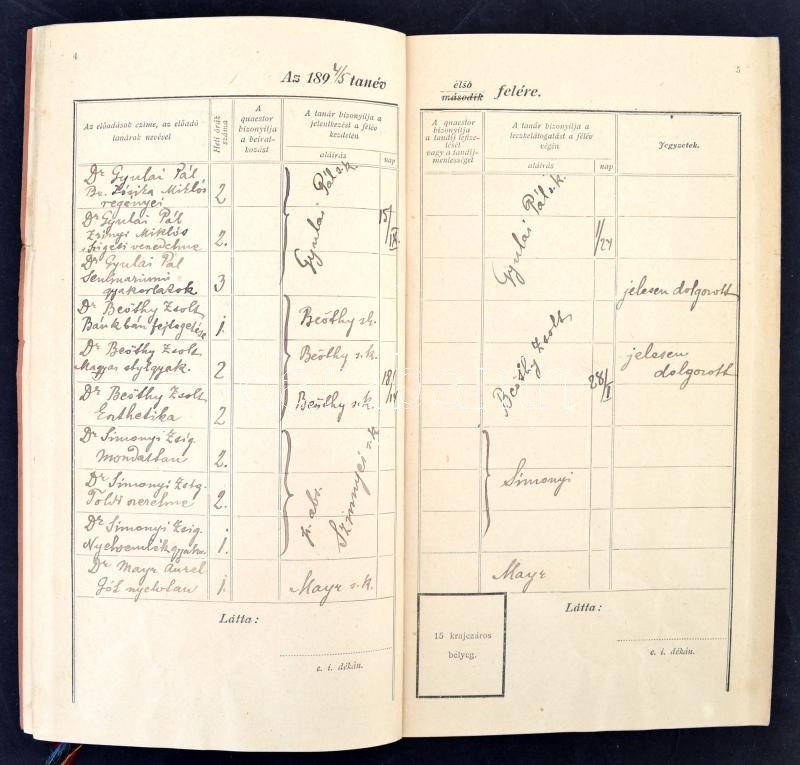 4
Az 189 4/5 tanév
Az előadások czíme, az előadó tanárok nevével
Heti órák száma
A quaestor bizonyítja a beiratkozást
A tanár bizonyítja a jelentkezést a félév kezdetén
aláírás
nap
Dr Gyulai Pál
Br. Jósika Miklós
regényei
2
Dr Gyulai Pál
Zrinyi Miklós
Szigeti veszedelme
2.
Dr Gyulai Pál
gyakorlatok
3
Gyulai Pál s. k.
15/IX.
Dr Beöthy Zsolt
Bánkbán fejtegetése
1.
Beöthy sk.
Dr Beöthy Zsolt
Magyar stylgyak.
2
Beöthy s. k.
18/
Dr Beöthy Zsolt
Esthetika
2
Beöthy s. k.
Dr Simonyi Zsig.
Mondattan
2.
Dr Simonyi Zsig.
Toldi szerelme
2.
Dr Simonyi Zsig.
Nyelvemlékgyak.
1.
p. abs.
Szinnyei s. k
Dr Mayr Aurel
Gót nyelvtan
1.
Mayr s. k.
Látta:
e. i. dékán.
5
első
második felére.
A quaestor bizonyítja a tandíj lefizetését vagy a tandíjmentességet
A tanár bizonyítja a leczkelátogatást a félév végén
aláírás
nap
Jegyzetek.
Gyulai Pál s. k.
jelesen dolgozott
Beöthy Zsolt
28/I
jelesen
dolgozott
Simonyi
Mayr
15 krajczáros
bélyeg.
Látta:
e. i. dékán.